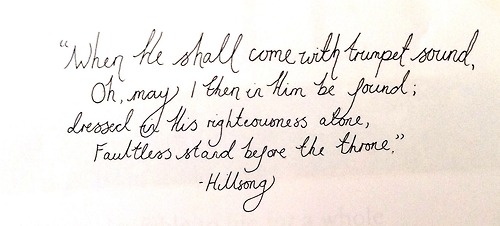 "When He shall come with trumpet sound,
Oh, may I then in Him be found;
dressed in His righteousness alone,
Faultless stand before the throne."
-Hillsong